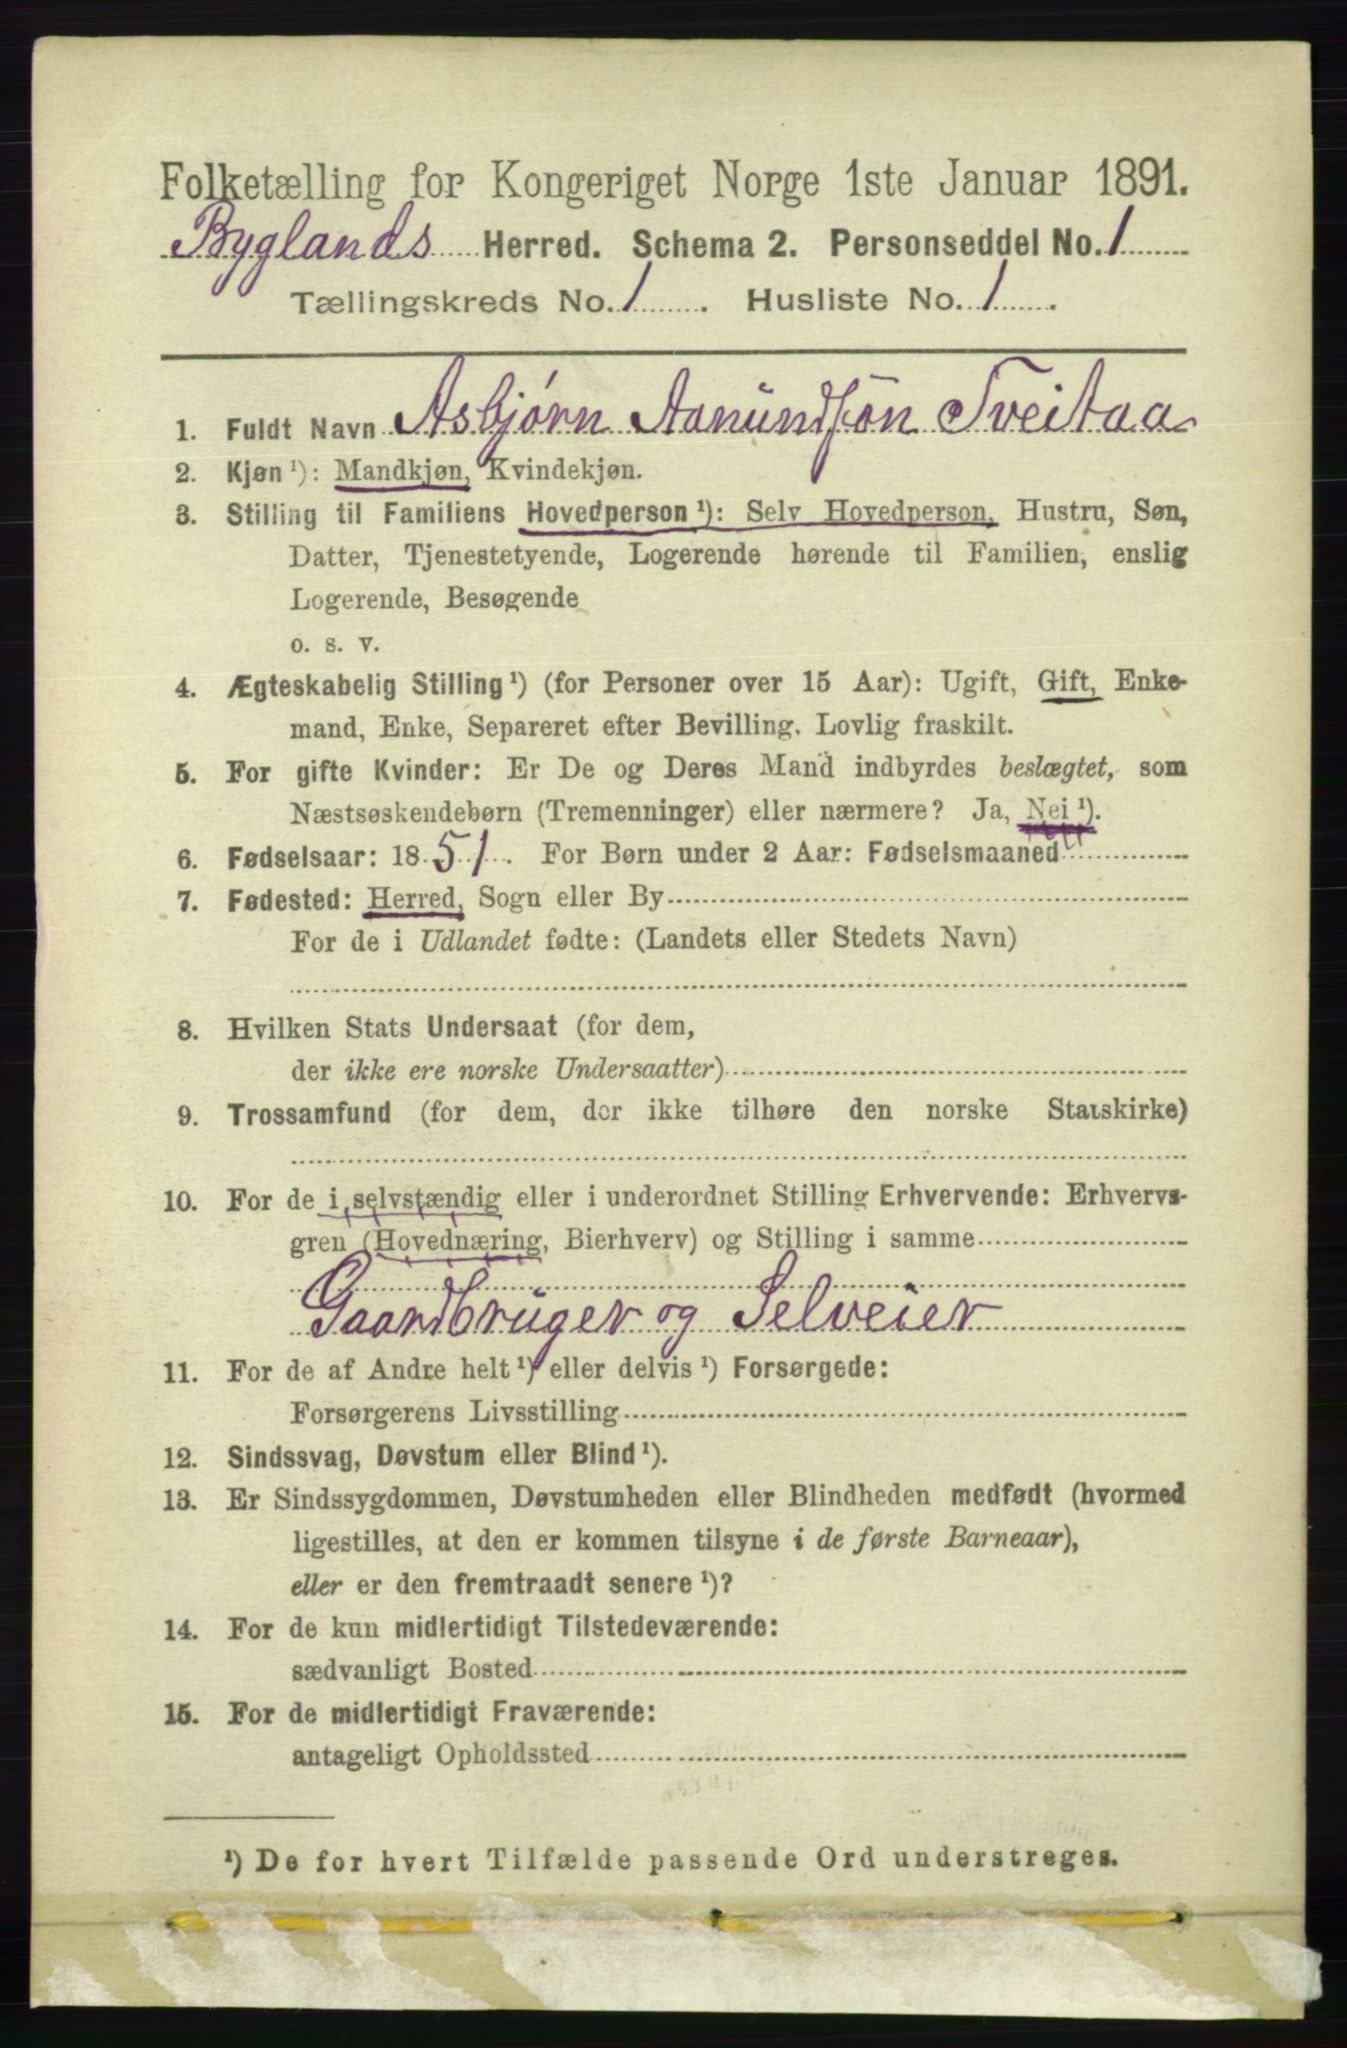 Folketælling for Kongeriget Norge 1ste Januar 1891.
Byglands Herred. Schema 2. Personseddel No. 1
Tællingskreds No. 1. Husliste No. 1.
1. Fuldt Navn Asbjørn Aanundsøn Tveitaa
2. Kjøn ¹): Mandkjøn, Kvindekjøn.
3. Stilling til Familiens Hovedperson ¹): Selv Hovedperson, Hustru, Søn,
Datter, Tjenestetyende, Logerende hørende til Familien, enslig
Logerende, Besøgende
o. s. v.
4. Ægteskabelig Stilling ¹) (for Personer over 15 Aar): Ugift, Gift, Enke-
mand, Enke, Separeret efter Bevilling. Lovlig fraskilt.
5. For gifte Kvinder: Er De og Deres Mand indbyrdes beslægtet, som
Næstsøskendebørn (Tremenninger) eller nærmere? Ja, Nei ¹).
6. Fødselsaar: 1851. For Børn under 2 Aar: Fødselsmaaned
7. Fødested: Herred, Sogn eller By
For de i Udlandet fødte: (Landets eller Stedets Navn)
8. Hvilken Stats Undersaat (for dem,
der ikke ere norske Undersaatter)
9. Trossamfund (for dem, der ikke tilhøre den norske Statskirke)
10. For de i selvstændig eller i underordnet Stilling Erhvervende: Erhvervs-
gren (Hovednæring, Bierhverv) og Stilling i samme
Gaardbruger og Selveier
11. For de af Andre helt ¹) eller delvis ¹) Forsørgede:
Forsørgerens Livsstilling
12. Sindssvag, Døvstum eller Blind ¹).
13. Er Sindssygdommen, Døvstumheden eller Blindheden medfødt (hvormed
ligestilles, at den er kommen tilsyne i de første Barneaar),
eller er den fremtraadt senere ¹)?
14. For de kun midlertidigt Tilstedeværende:
sædvanligt Bosted
15. For de midlertidigt Fraværende:
antageligt Opholdssted
¹) De for hvert Tilfælde passende Ord understreges.